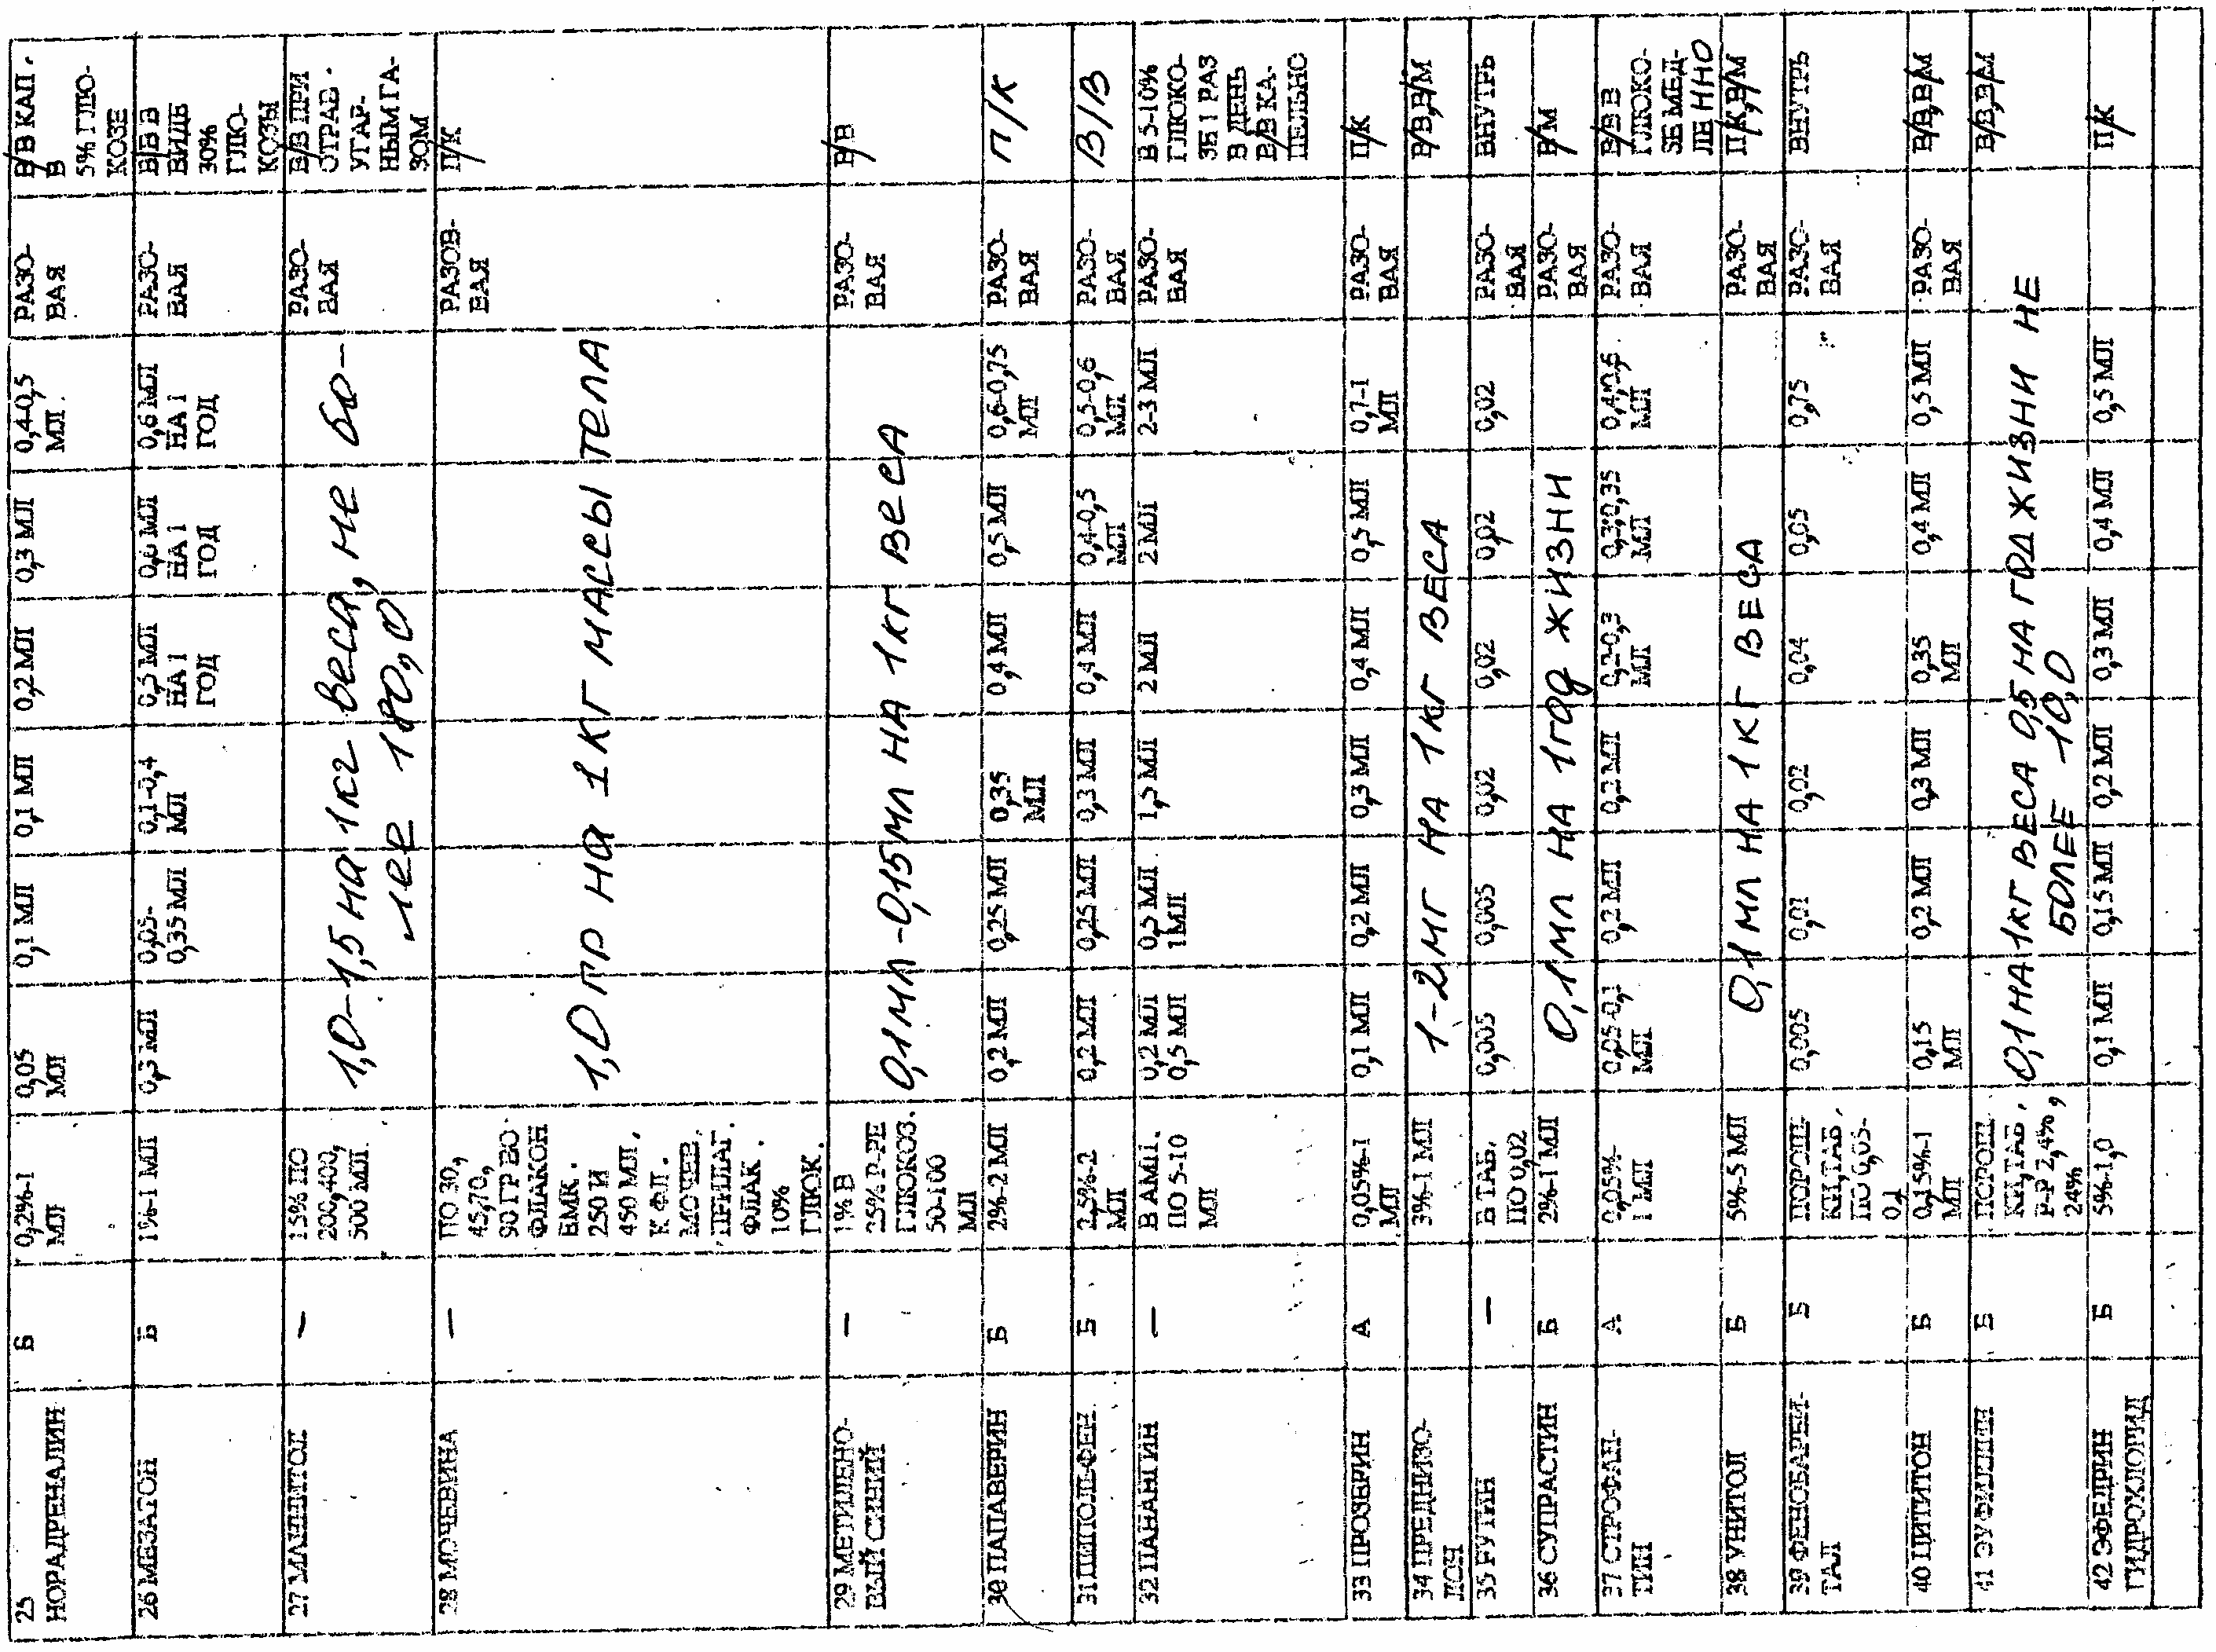 25
НОРАДРЕНАЛИН
Б
0,2%-1
МЛ
0,05
МЛ
0,1 МЛ
0,1 МЛ
0,2 МЛ
0,3 МЛ
0,4-0,5
МЛ.
РАЗО-
ВАЯ
В/В КАП.
В
5% ГЛЮ-
КОЗЕ
26 МЕЗАТОН
Б
1%-1 МЛ
0,3 МЛ
0,05-
0,35 МЛ
0,1-0,4
МЛ
0,5 МЛ
НА 1
ГОД
0,6 МЛ
НА 1
ГОД
0,6 МЛ
НА 1
ГОД
РАЗО-
ВАЯ
В/В В
ВИДЕ
30%
ГЛЮ-
КОЗЫ
27 МАННИТОЛ
—
15% ПО
200,400,
500 МЛ.
1,0-1,5 на 1кг веса, не бо-
лее 180,0
РАЗО-
ВАЯ
В/В ПРИ
ОТРАВ.
УГАР-
НЫМ ГА-
ЗОМ
28 МОЧЕВИНА
—
ПО 30,
45,70,
90 ГР ВО
ФЛАКОН
ЕМК.
250 И
450 МЛ.
К ФЛ.
МОЧЕВ.
ПРИЛАГ.
ФЛАК.
10%
ГЛЮК.
1,0 гр на 1 кг массы тела
РАЗОВ-
ВАЯ
П/К
29 МЕТИЛЕНО-
ВЫЙ СИНИЙ
—
1% В
25% Р-РЕ
ГЛЮКОЗ.
50-100
МЛ
0,1мл-0,15мл на 1кг веса
РАЗО-
ВАЯ
В/В
30 ПАПАВЕРИН
Б
2%-2 МЛ
0,2 МЛ
0,25 МЛ
0,35
МЛ
0,4 МЛ
0,5 МЛ
0,6-0,75
МЛ
РАЗО-
ВАЯ
П/К
31 ПИПОЛЬФЕН
Б
2,5%-2
МЛ
0,2 МЛ
0,25 МЛ
0,3 МЛ
0,4 МЛ
0,4-0,5
МЛ
0,5-0,6
МЛ
РАЗО-
ВАЯ
В/В
32 ПАНАНГИН
—
В АМП.
ПО 5-10
МЛ
0,2 МЛ
0,5 МЛ
0,5 МЛ
1МЛ
1,5 МЛ
2 МЛ
2 МЛ
2-3 МЛ
РАЗО-
ВАЯ
В 5-10%
ГЛЮКО-
ЗЕ 1 РАЗ
В ДЕНЬ
В/В КА-
ПЕЛЬНО
33 ПРОЗЕРИН
А
0,05%-1
МЛ
0,1 МЛ
0,2 МЛ
0,3 МЛ
0,4 МЛ
0,5 МЛ
0,7-1
МЛ
РАЗО-
ВАЯ
П/К
34 ПРЕДНИЗО-
ЛОН
3%-1 МЛ
1-2 мг НА 1кг ВЕСА
В/В,В/М
35 РУТИН
—
В ТАБ.
ПО 0,02
0,005
0,005
0,02
0,02
0,02
0,02
РАЗО-
ВАЯ
ВНУТРЬ
36 СУПРАСТИН
Б
2%-1 МЛ
0,1мл НА 1год ЖИЗНИ
РАЗО-
ВАЯ
В/М
37 СТРОФАН-
ТИН
А
0,05%-
1 МЛ
0,05-0,1
МЛ
0,2 МЛ
0,2 МЛ
0,2-0,3
МЛ
0,3-0,35
МЛ
0,4-0,5
МЛ
РАЗО-
ВАЯ
В/В В
ГЛЮКО-
ЗЕ МЕД-
ЛЕННО
38 УНИТОЛ
Б
5%-5 МЛ
0,1 мл НА 1 КГ ВЕСА
РАЗО-
ВАЯ
П/К,В/М
39 ФЕНОБАРБИ-
ТАЛ
Б
ПОРОШ-
КИ,ТАБ.
ПО 0,05-
0,1
0,005
0,01
0,02
0,04
0,05
0,75
РАЗО-
ВАЯ
ВНУТРЬ
40 ЦИТИТОН
Б
0,15%-1
МЛ
0,15
МЛ
0,2 МЛ
0,3 МЛ
0,35
МЛ
0,4 МЛ
0,5 МЛ
РАЗО-
ВАЯ
В/В,В/М
41 ЭУФИЛЛИН
Б
ПОРОШ-
КИ,ТАБ.
Р-Р 2,4%,
24%
0,1 НА 1кг ВЕСА 0,5 НА ГОД ЖИЗНИ НЕ
БОЛЕЕ 10,0
В/В,В/М
42 ЭФЕДРИН
ГИДРОХЛОРИД
Б
5%-1,0
0,1 МЛ
0,15 МЛ
0,2 МЛ
0,3 МЛ
0,4 МЛ
0,5 МЛ
П/К